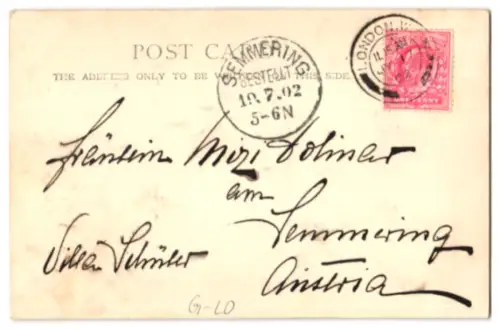 POST CARD
THE ADDRESS ONLY TO BE THIS SIDE.
SEMMERING
BESTELLT
10.7.02
5-6N
LONDON
PENNY
Fräulein Mizi Dolinar
am
Semmering
Villa Schüler
Austria
G-LD